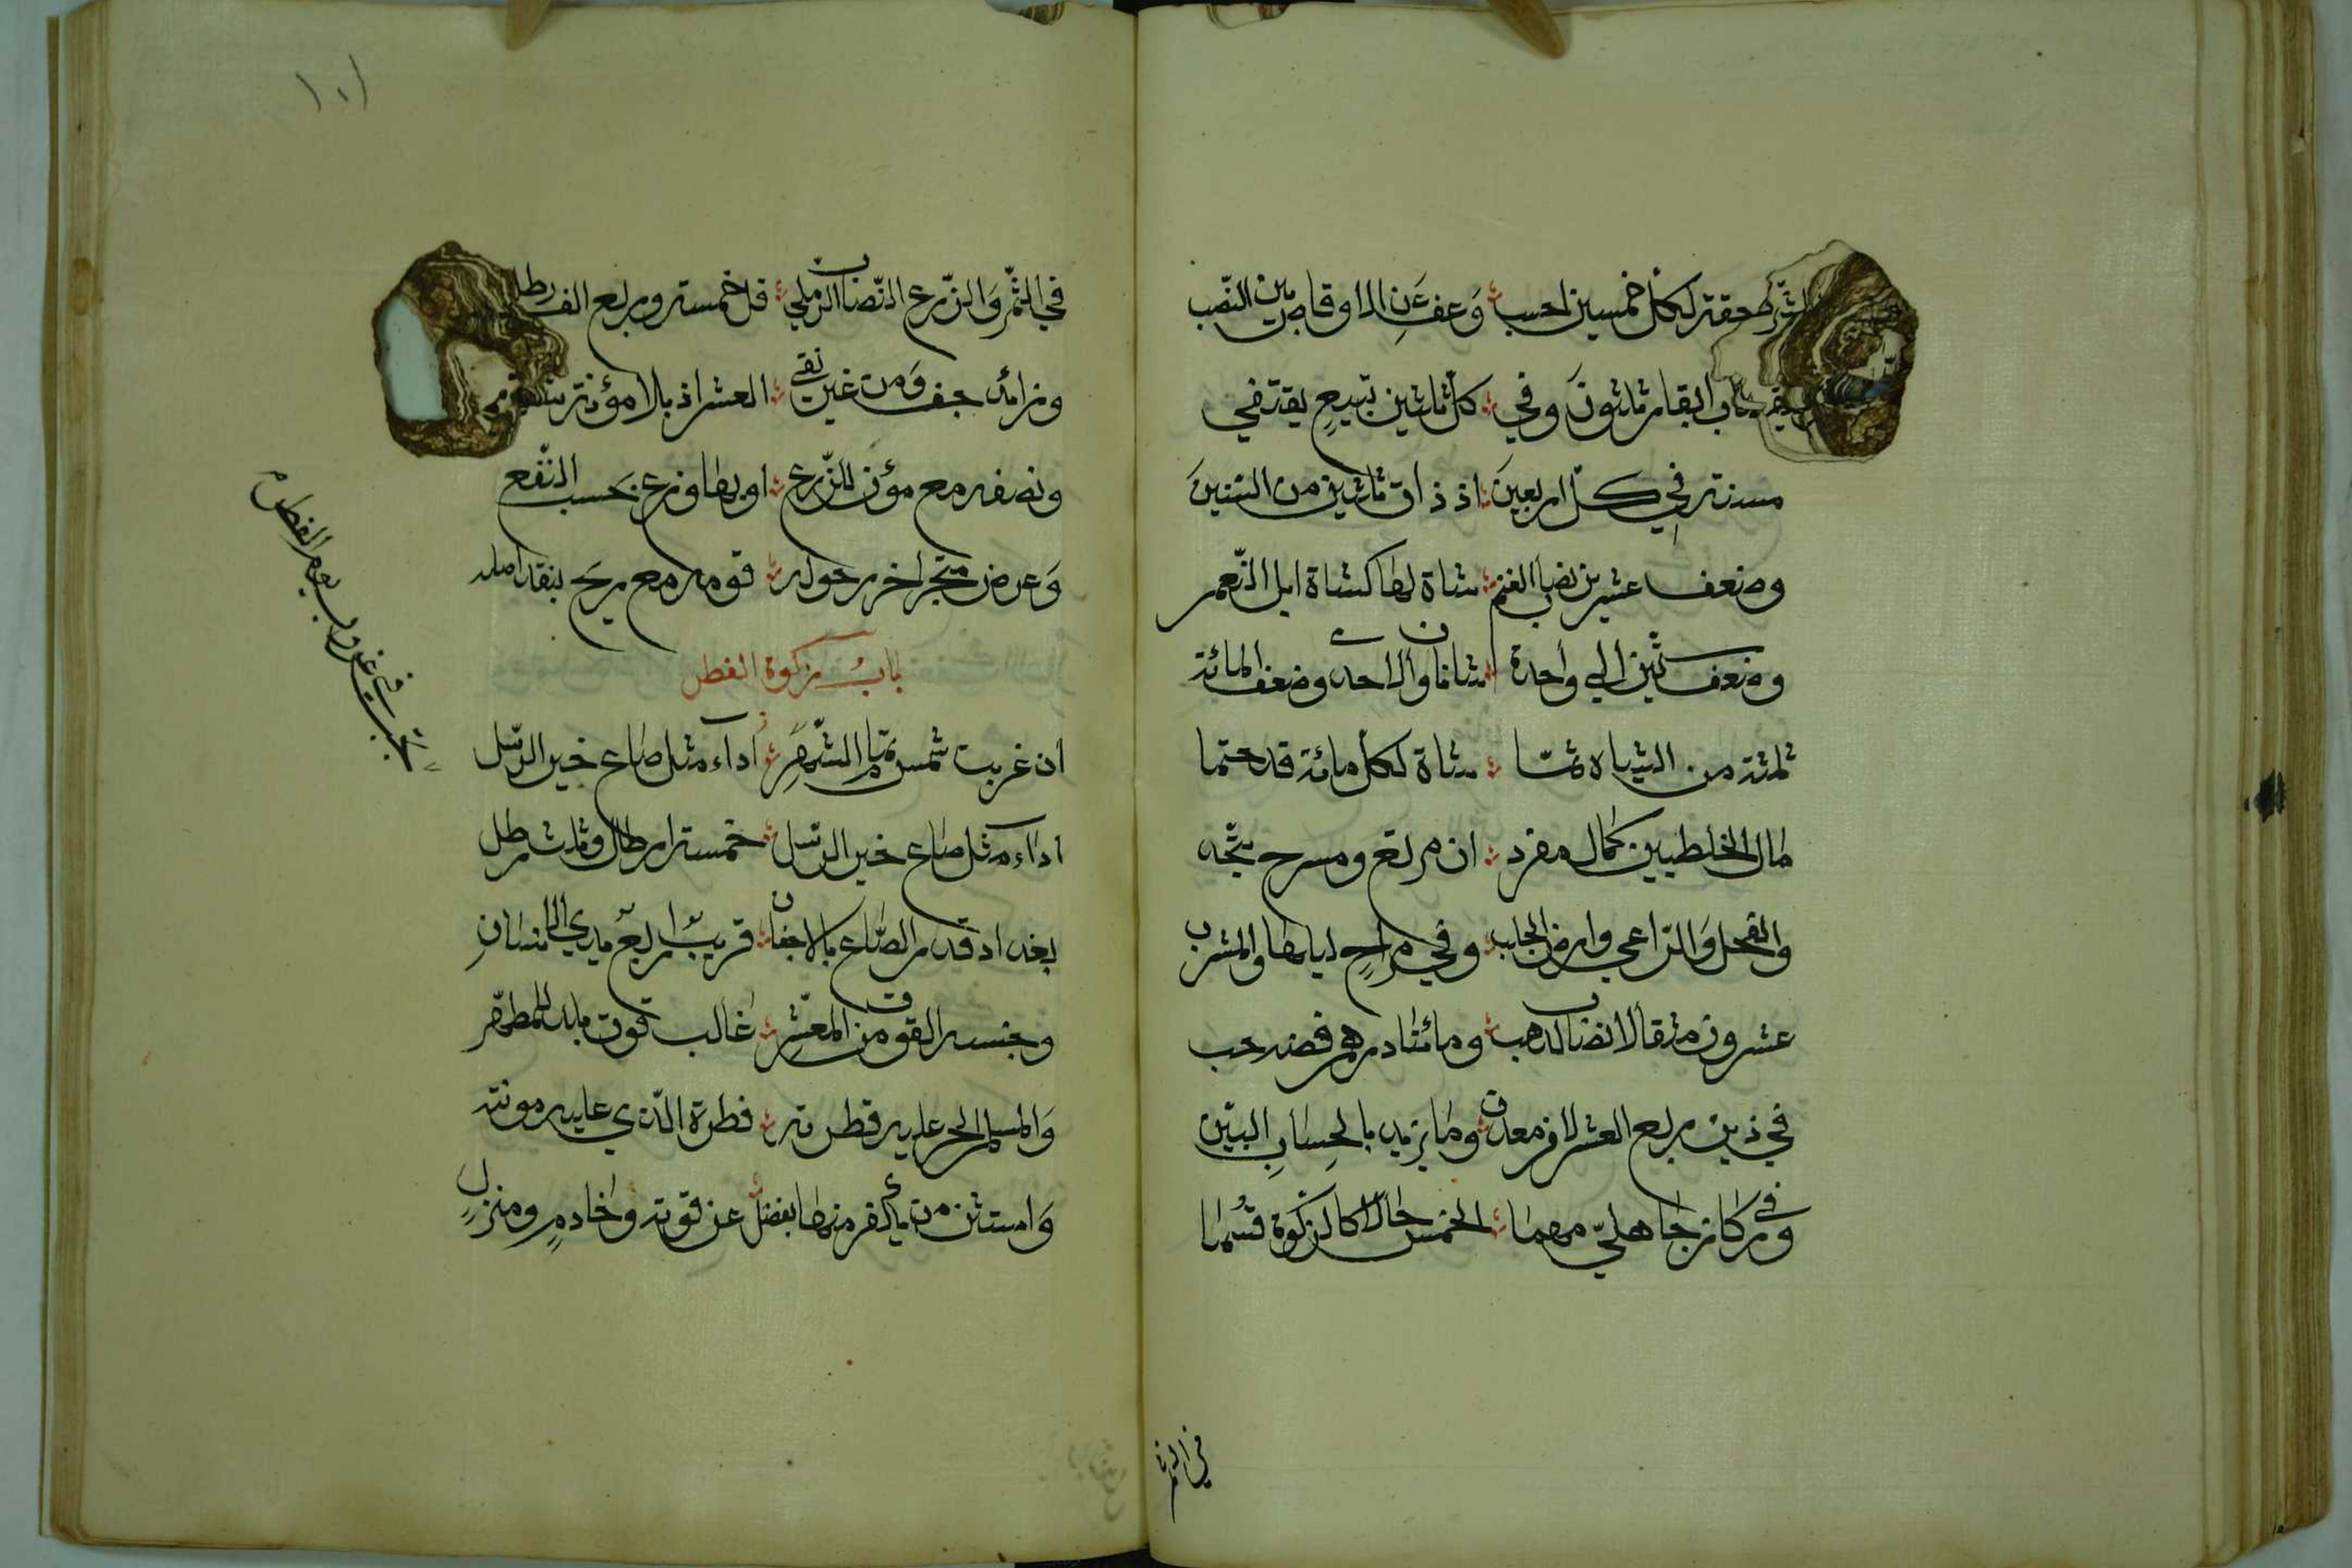 الشرط حقة لكل خمسين احسب وعف عن الاوقاص بين النصب
نصاب ابقار ثلثون وفي كل ثلثين تبيع يقتفي
مسنة في كل اربعين اذ ذاق ثلثين من السنين
وضعف عشرين نصاب الغنم شاة لها كشاة ابل النعم
وضعف ستين الي واحدة شاتان والاحدى وضعف المائة
ثلثة من الشياه ثما شاة لكل مائة قد حتما
مال الخلطيين كمال مفرد ان مرتع ومسرح يتحد
والفحل والراعي وارض الحلب وفي مراح ليلها والمشرب
عشرون مثقالا نصاب الذهب ومائتا درهم فضه حب
في ذين ربع العشر لا فى معدن وما يزيد بالحساب البين
وفي ركاز جاهلي مهما الخمس حالا كالزكوة قسما
في الثمر
١٠١
في الثمر والزرع النصاب الرملي قل خمسة وربع الف رطل
وزائد جف ومن غير نقي العشر اذ بلا مؤنة سقي
ونصفه مع مؤن للزرع او بهما وزع بحسب النفع
وعرض متجر اخر حوله قومه مع ربح بنقد اصله
باب زكوة الفطر
ان غربت شمس تمام الشهر اداء مثل صاع خير الرسل
اداء مثل صاع خير الرسل خمسة ارطال وثلث رطل
بغداد قدر الصاع بالاجفان قريب اربع يدي الانسان
وجنسه القوت من المعشر غالب قوت بلد المطهر
والمسلم الحر عليه فطرته فطرة الذي عليه مونته
واستثن من يكفر منها يفضل عن قوته وخادم ومنزل
تجب في غروب يوم الفطر